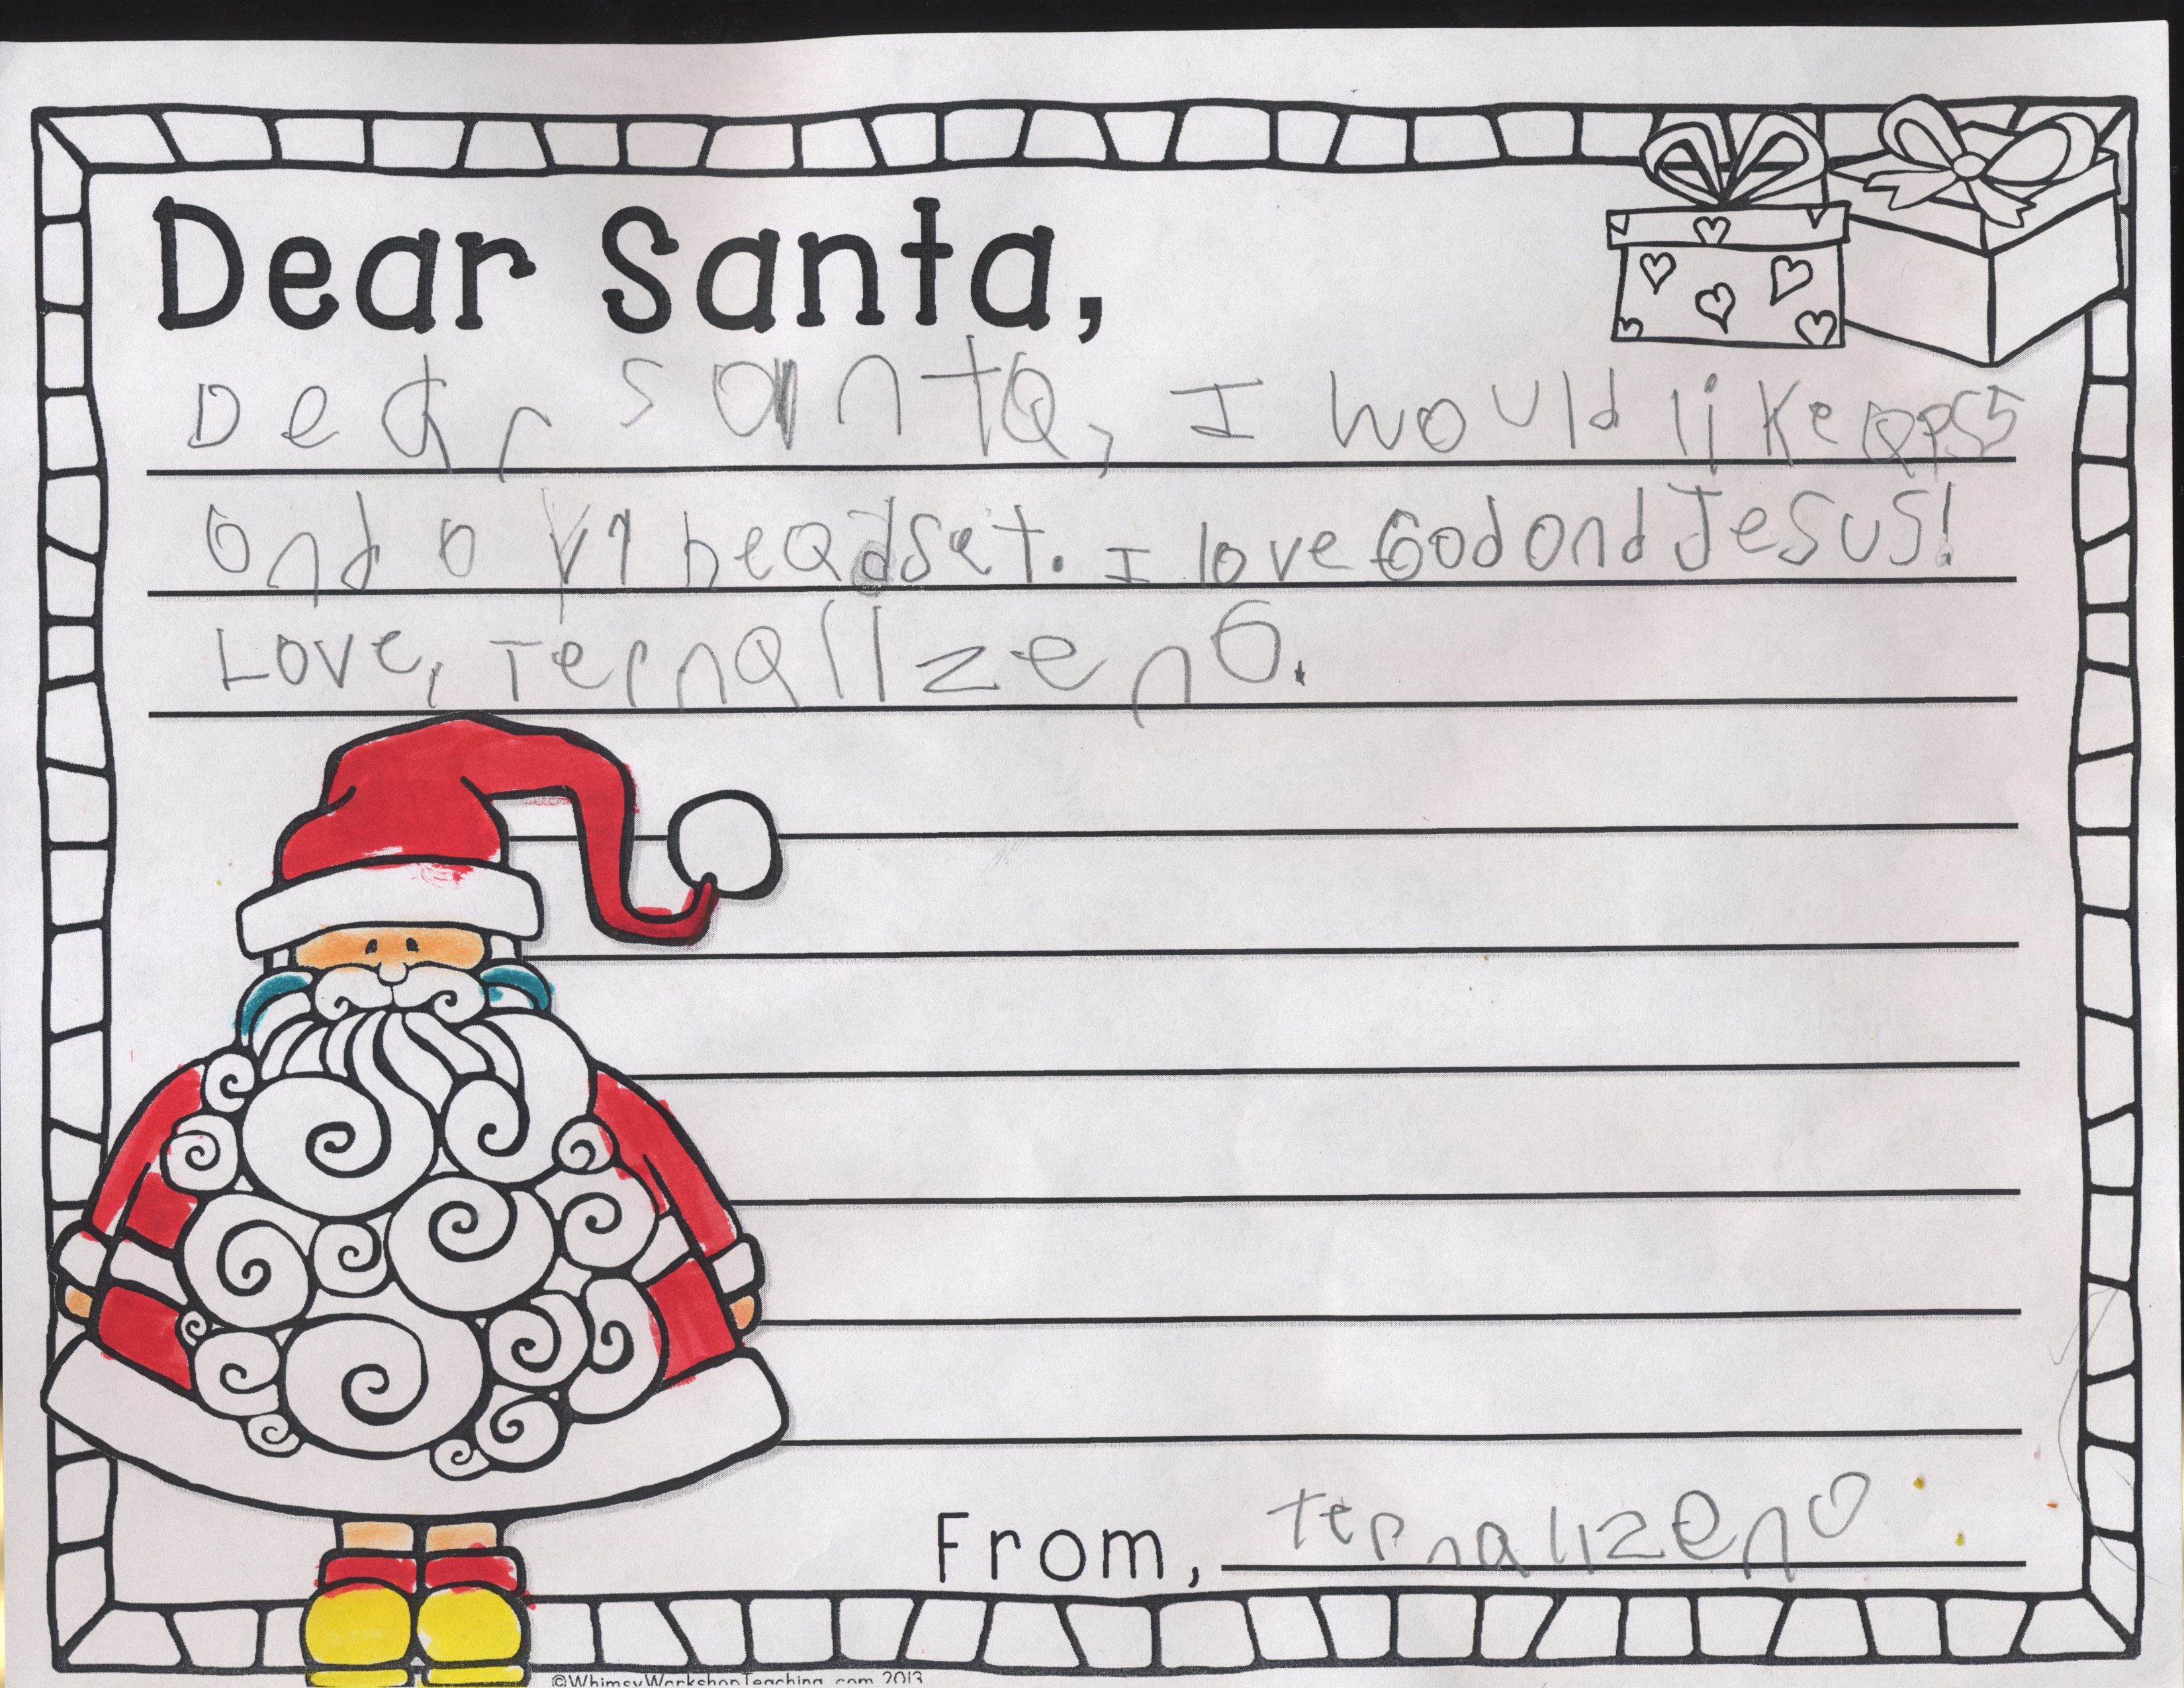 Dear Santa,
Dear santa, I would like a PS5
and a Vr headset. I love God and Jesus!
Love, Ternallzeno.
From, ternallzeno
©WhimsyWorkshopTeaching.com 2013